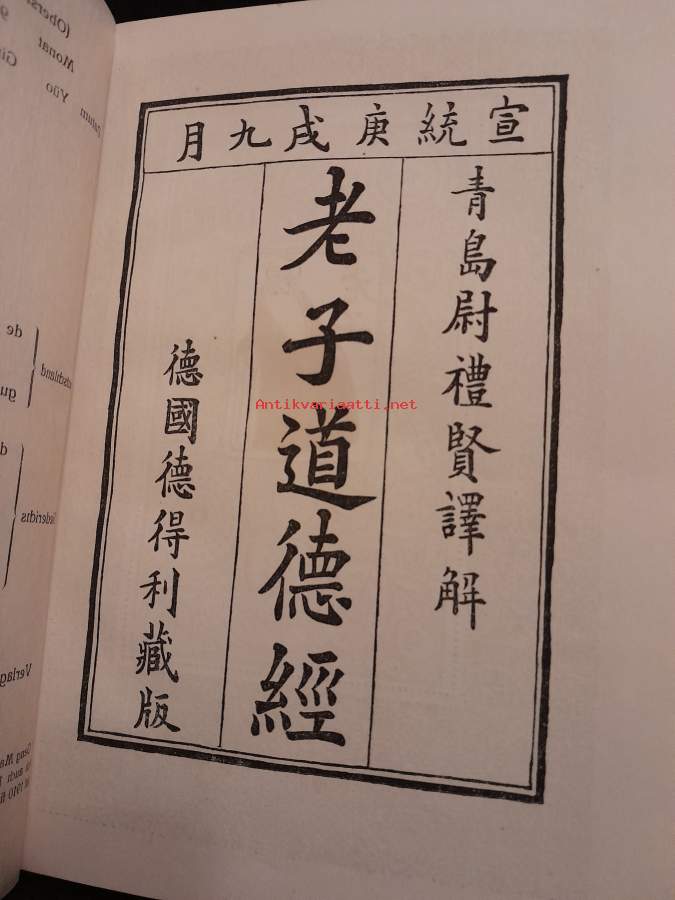 宣統庚戌九月
青島尉禮賢譯解
老子道德經
德國德得利藏版
Antikvariaatti.net
(Oberst
Monat
Yüo
Datum
de
gu
Verlag